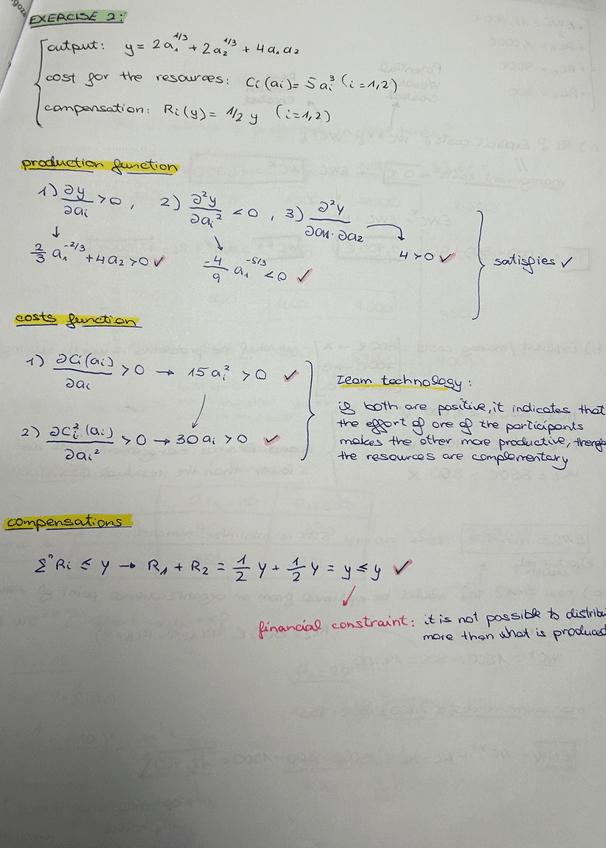 EXERCISE 2:
output: y = 2a₁^1/3 + 2a₂^1/3 + 4a₁a₂
cost for the resources: Ci(ai) = 5ai³ (i=1,2)
compensation: Ri(y) = 1/2 y (i=1,2)
production function
1) ∂y/∂ai >0, 2) ∂²y/∂ai² <0, 3) ∂²y/∂a1·∂a2
2/3 a₁^-2/3 + 4a₂ >0 ✓ -4/9 a₁^-5/3 <0 ✓ 4>0 ✓ satisfies ✓
costs function
1) ∂Ci(ai)/∂ai >0 → 15ai² >0 ✓
2) ∂Ci²(ai)/∂ai² >0 → 30ai >0 ✓
Team technology:
if both are positive, it indicates that
the effort of one of the participants
makes the other more productive,
the resources are complementary
compensations
Σⁿ Ri ≤ y → R₁ + R₂ = 1/2 y + 1/2 y = y ≤ y ✓
financial constraint: it is not possible to
more than what is